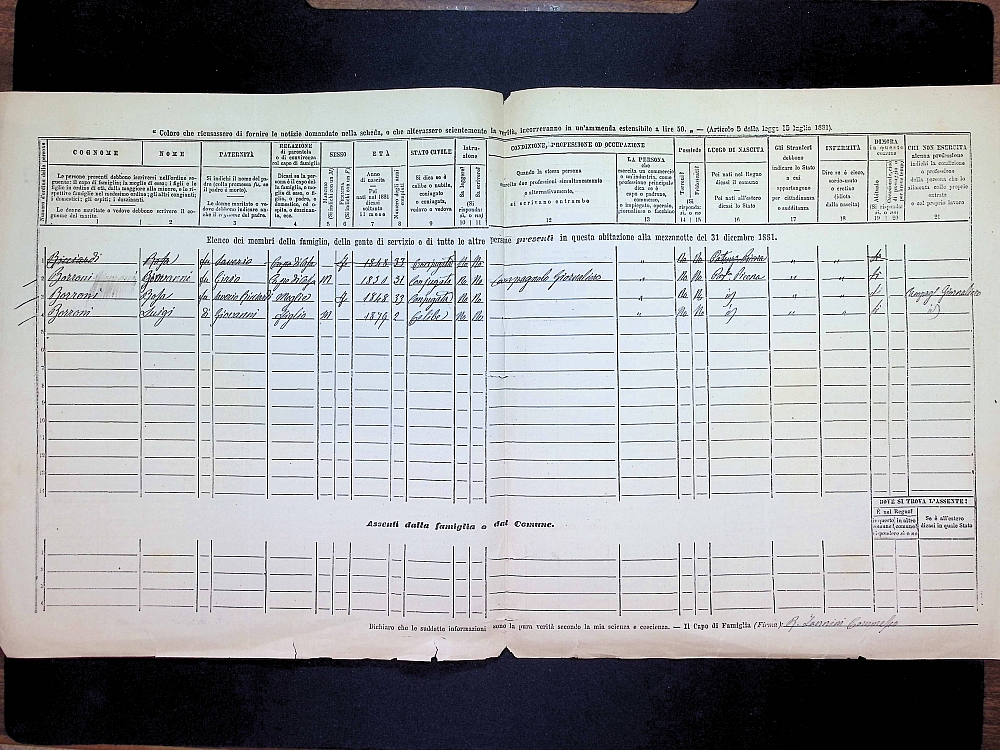 " Coloro che ricusassero di fornire le notizie domandate nella scheda, o che alterassero scientemente la verità, incorreranno in un'ammenda estensibile a lire 50. „ — (Articolo 5 della legge 15 luglio 1881).
COGNOME NOME PATERNITÀ RELAZIONE di parentela o di convivenza col capo di famiglia SESSO ETÀ STATO CIVILE Istruzione CONDIZIONE, PROFESSIONE OD OCCUPAZIONE Possiede LUOGO DI NASCITA Gli Stranieri INFERMITÀ DIMORA in questo comune CHI NON ESERCITA
Le persone presenti debbono iscriversi nell'ordine seguente: il capo di famiglia; la moglie di esso; i figli e le figlie in ordine di età, dalla maggiore alla minore, e la rispettiva moglie nel medesimo ordine; gli altri congiunti; i domestici; gli ospiti; i dozzinanti.
Le donne maritate o vedove debbono scrivere il cognome del marito.
Si indichi il nome del padre
Le donne maritate o vedove debbono indicare anche il nome del padre.
Dicasi se la persona è il capo della famiglia, o moglie di esso, o figlio, o padre, o domestico, od ospite, o dozzinante, ecc.
Anno di nascita
Pei nati nel 1881 dicasi soltanto il mese
Numero degli anni compiuti
Si dica se è celibe o nubile, coniugato o coniugata, vedovo o vedova
Sa leggere?
Sa scrivere?
(Si risponda: sì, o no)
Quando la stessa persona esercita due professioni simultaneamente o alternativamente, si scrivano entrambe
LA PERSONA che esercita un commercio o un'industria, come professione principale dica se è capo o padrone, commesso, o impiegato, operaio, giornaliero o facchino
Terreni? Fabbricati?
(Si risponda: sì, o no)
Pei nati nel Regno dicasi il comune
Pei nati all'estero dicasi lo Stato
debbono indicare lo Stato a cui appartengono per cittadinanza o sudditanza
Dire se è cieco, sordo-muto o cretino (idiota dalla nascita)
Abituale
alcuna professione indichi la condizione o professione della persona che lo alimenta colle proprie entrate o col proprio lavoro
2 3 4 5 6 7 8 9 10 11 12 13 14 15 16 17 18 19 20 21
Elenco dei membri della famiglia, della gente di servizio o di tutte le altre persone presenti in questa abitazione alla mezzanotte del 31 dicembre 1881.
Ricciardi Rosa fu Saverio Capo di casa f 1848 33 Conjugata No No " No No " " si
Borroni Giovanni fu Capo di casa m 31 Conjugato No No Campagnolo Giornaliero " No No " " si
Borroni Rosa fu Saverio Ricciardi Moglie f 1848 33 Conjugata No No " No No id " " si Giornaliero
Borroni Luigi Di Giovanni Figlio m 1879 2 Celibe No No " No No id " " si id
Assenti dalla famiglia o dal Comune.
DOVE SI TROVA L'ASSENTE?
È nel Regno?
in questo comune? in altro comune?
rispondere sì o no
Se è all'estero dicasi in quale Stato
Dichiaro che le suddette informazioni sono la pura verità secondo la mia scienza e coscienza. — Il Capo di Famiglia (Firma):